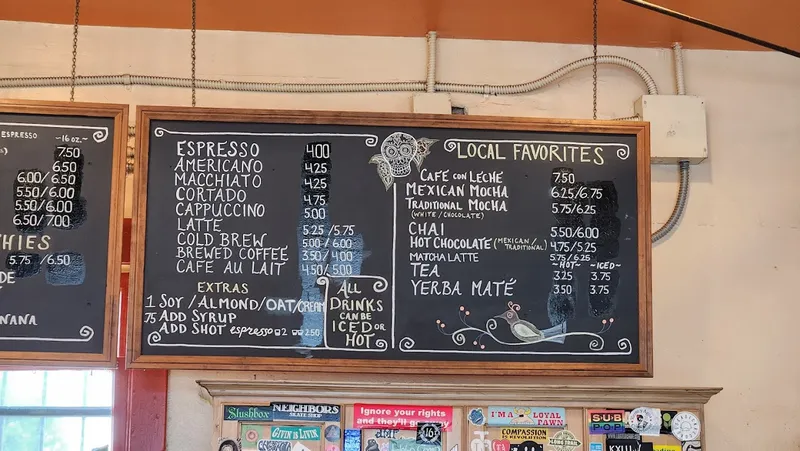 ESPRESSO ~16 oz.~
7.50
6.50
6.00/6.50
5.50/6.00
5.50/6.00
6.50/7.00
HIES
5.75/6.50
3.50/4.00
DE
NANA
ESPRESSO 4.00
AMERICANO 4.25
MACCHIATO 4.25
CORTADO 4.75
CAPPUCCINO 5.00
LATTE 5.25/5.75
COLD BREW 5.00/6.00
BREWED COFFEE 3.50/4.00
CAFE AU LAIT 4.50/5.00
EXTRAS
1 SOY/ALMOND/OAT/CREAM
75 ADD SYRUP
ADD SHOT espresso 2 2.50
ALL
DRINKS
CAN BE
ICED OR
HOT
LOCAL FAVORITES
CAFE CON LECHE 7.50
MEXICAN MOCHA 6.25/6.75
TRADITIONAL MOCHA 5.75/6.25
(WHITE/CHOCOLATE)
CHAI 5.50/6.00
HOT CHOCOLATE (MEXICAN/TRADITIONAL) 4.75/5.25
MATCHA LATTE 5.75/6.25
~HOT~ ~ICED~
TEA 3.25 3.75
YERBA MATÉ 3.50 3.75
Slushbox
NEIGHBORS
SKATE SHOP
GIVIN is LIVIN
Ignore your rights
and they'll go away
I'M A LOYAL
FAWN
COMPASSION
IS REVOLUTION
LONG TRAIL
SUB
POP